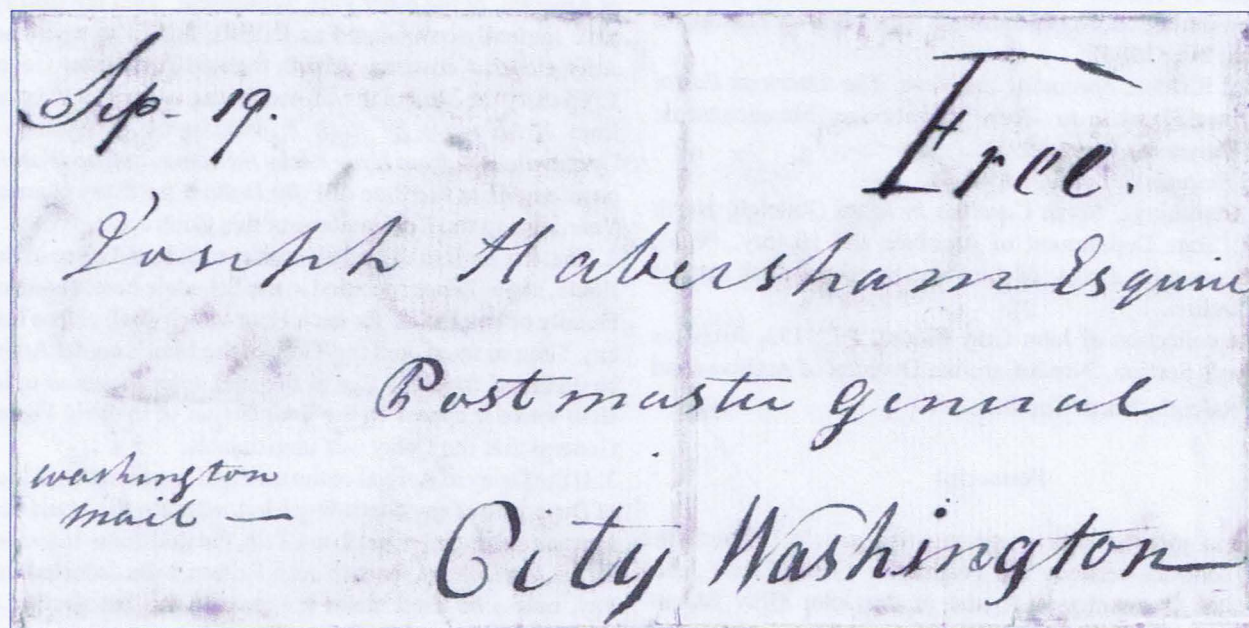 Sep. 19.
Free.
Joseph Habersham Esquire
Postmaster General
washington
mail —
City Washington